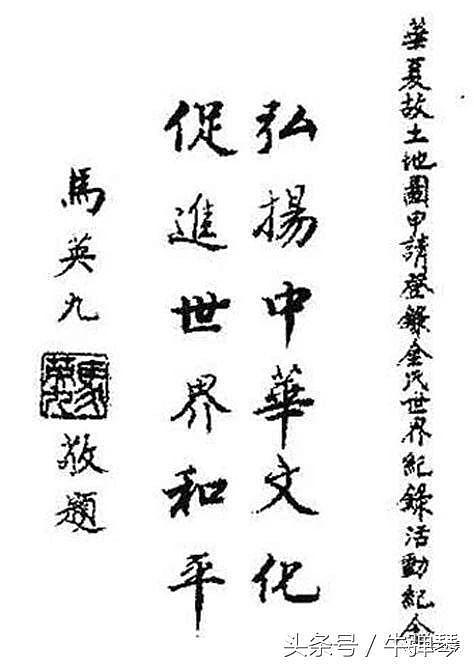 華夏故土地圖申請登錄金氏世界紀錄活動紀念
弘揚中華文化
促進世界和平
馬英九
馬英九
敬題
头条号／牛弹琴